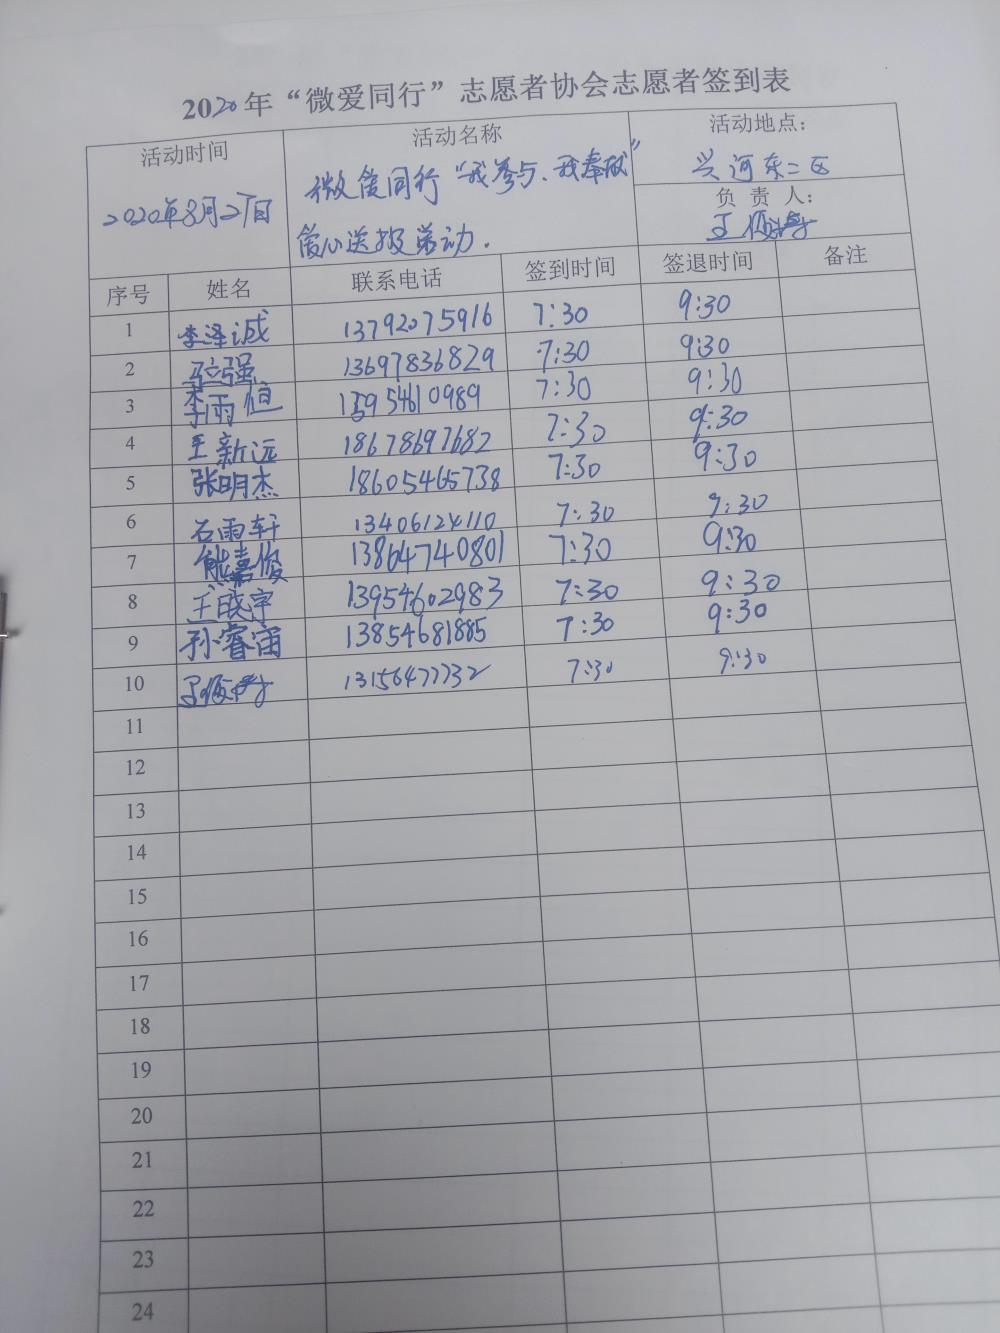 2020年“微爱同行”志愿者协会志愿者签到表
活动时间 活动名称 活动地点：
2020年8月27日 微爱同行“我参与、我奉献” 兴河东二区
爱心送报活动. 负 责 人：
序号 姓名 联系电话 签到时间 签退时间 备注
1 李泽诚 13792075916 7:30 9:30
2 强 13697836829 7:30 9:30
3 李雨恒 15954610989 7:30 9:30
4 王新远 18678697682 7:30 9:30
5 张明杰 18605465738 7:30 9:30
6 石雨轩 13406124110 7:30 9:30
7 熊嘉俊 13864740801 7:30 9:30
8 王晓宇 13954602983 7:30 9:30
9 孙睿宙 13854681885 7:30 9:30
10 13156477732 7:30 9:30
11
12
13
14
15
16
17
18
19
20
21
22
23
24